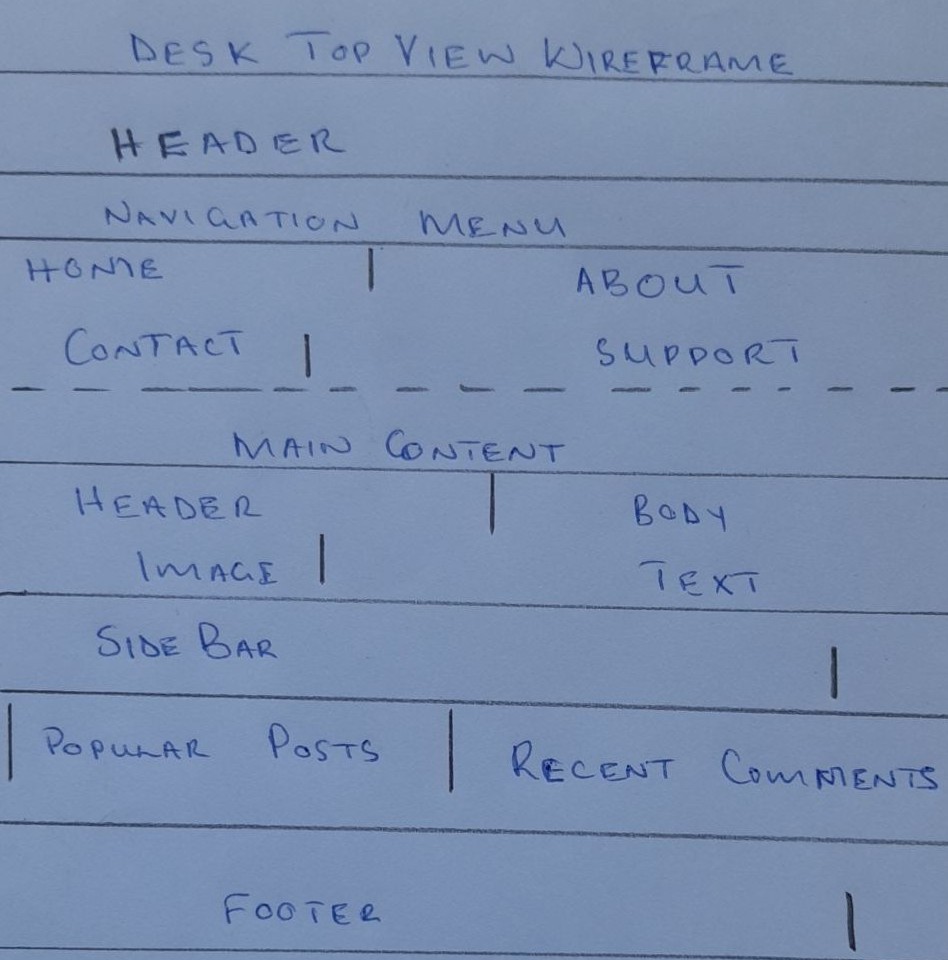 DESK TOP VIEW WIREFRAME
HEADER
NAVIGATION MENU
HOME | ABOUT
CONTACT | SUPPORT
MAIN CONTENT
HEADER | BODY
IMAGE | TEXT
SIDE BAR |
| POPULAR POSTS | RECENT COMMENTS
FOOTER |